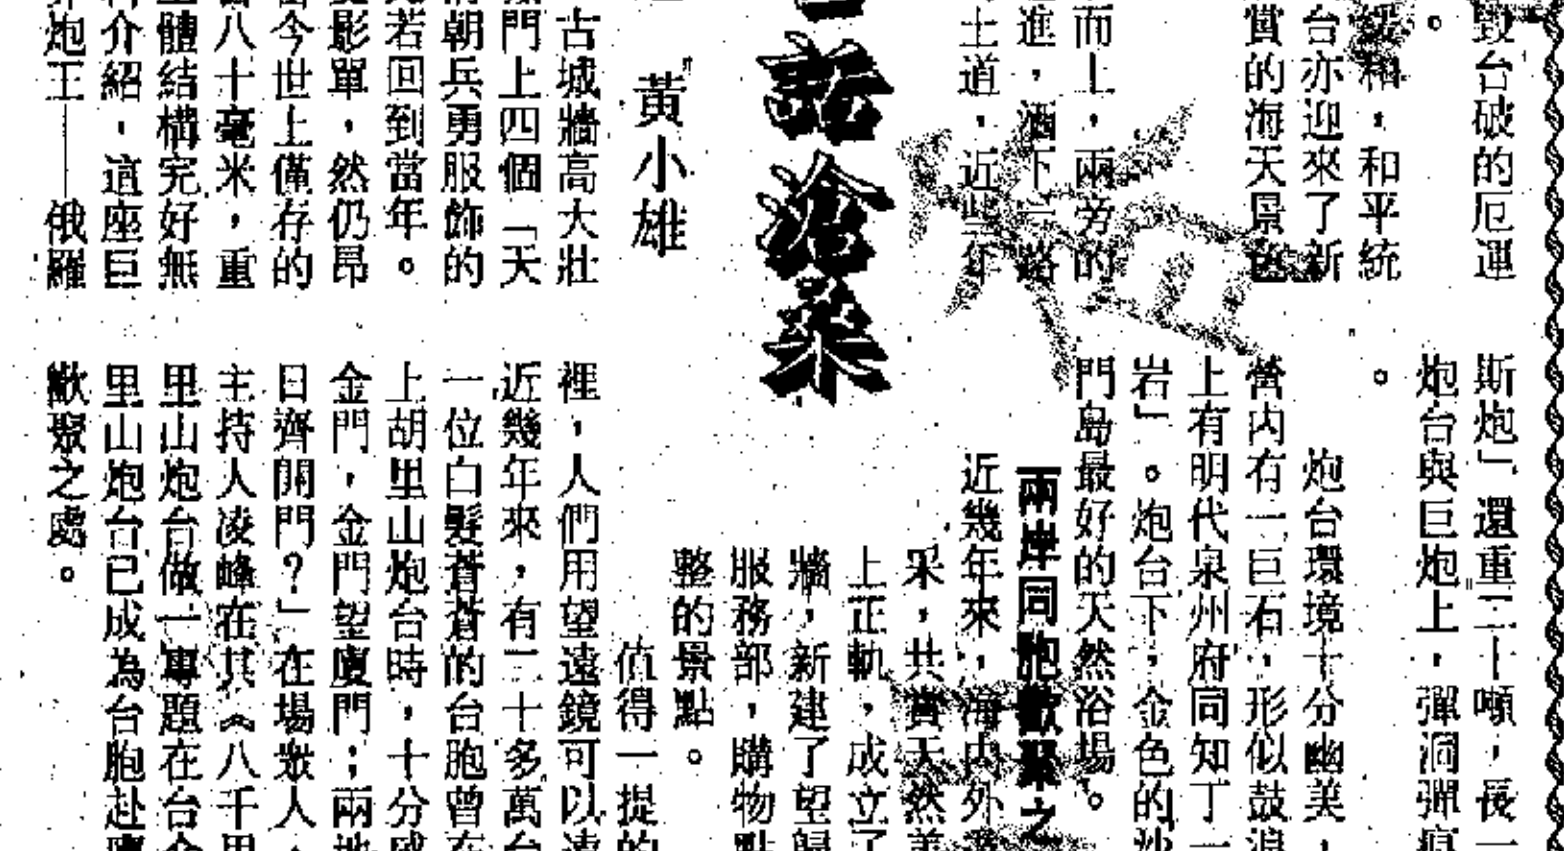 毀台破的厄運
。
和，和平統
台亦迎來了新
賞的海天景色
而上，兩旁的
進，洒下一路
土道，近些年
話滄桑
黃小雄
古城牆高大壯
門上四個「天
朝兵勇服飾的
若回到當年。
影單，然仍昂
今世上僅存的
八十毫米，重
體結構完好無
介紹，這座巨
炮王——俄羅
斯炮」還重二十噸，長一
炮台與巨炮上，彈洞彈痕
。
炮台環境十分幽美，
營內有一巨石，形似鼓浪
上有明代泉州府同知丁一
岩」。炮台下，金色的沙
門島最好的天然浴場。
兩岸同胞歡聚之
近幾年來，海內外
采，共賞天然美
上正軌，成立了
牆，新建了望歸
服務部，購物點
整的景點。
值得一提的
裡，人們用望遠鏡可以遠
近幾年來，有二十多萬台
一位白髮蒼蒼的台胞曾在
上胡里山炮台時，十分感
金門，金門望廈門；兩地
日齊開門？」在場衆人，
主持人凌峰在其《八千里
里山炮台做一專題在台
里山炮台已成為台胞赴廈
歡聚之處。